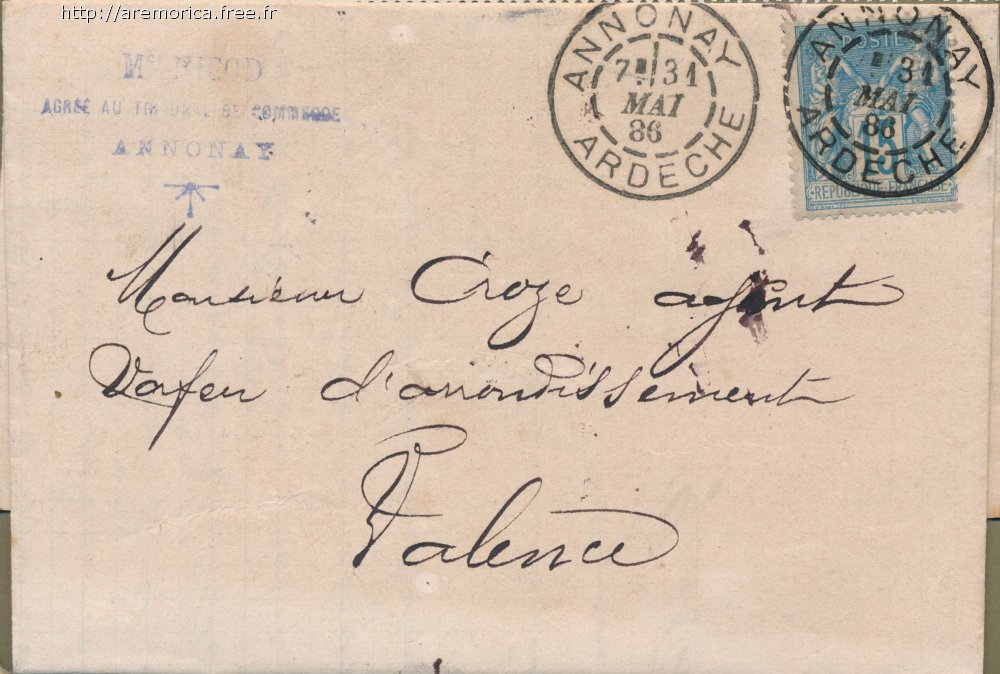 http://aremorica.free.fr
Me NICOD
AGRÉÉ AU TRIBUNAL DE COMMERCE
ANNONAY
ANNONAY
31
MAI
86
ARDECHE
ANNONAY
31
MAI
86
ARDECHE
POSTE
15
REPUBLIQUE FRANÇAISE
Monsieur Croze agent
d'arrondissement
Valence